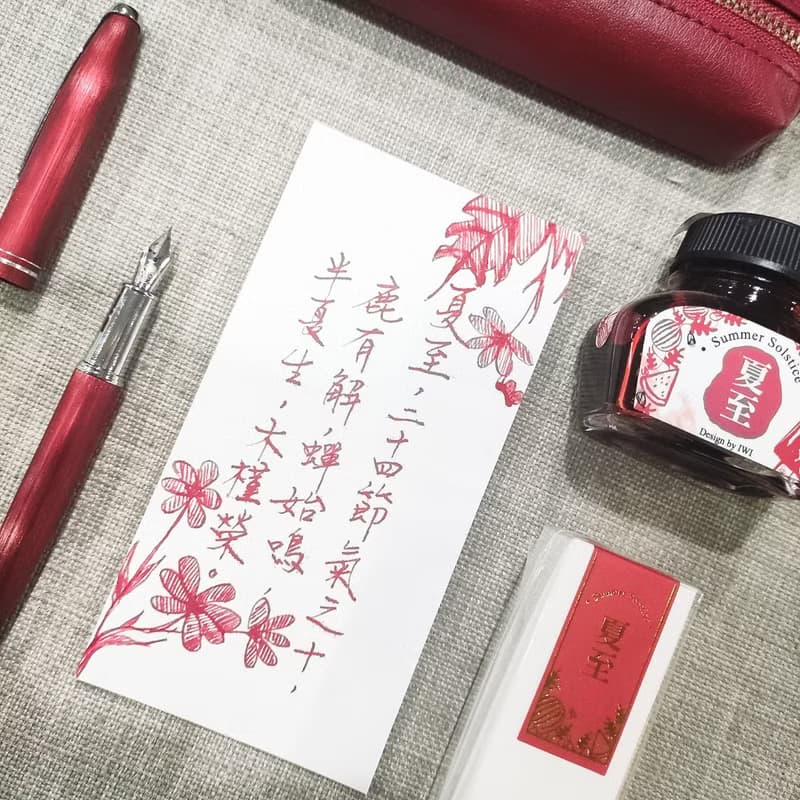 夏至，二十四節氣之十，
鹿角解，蟬始鳴，
半夏生，木槿榮。
Summer Solstice
夏至
Design by IWI
Summer Solstice
夏至